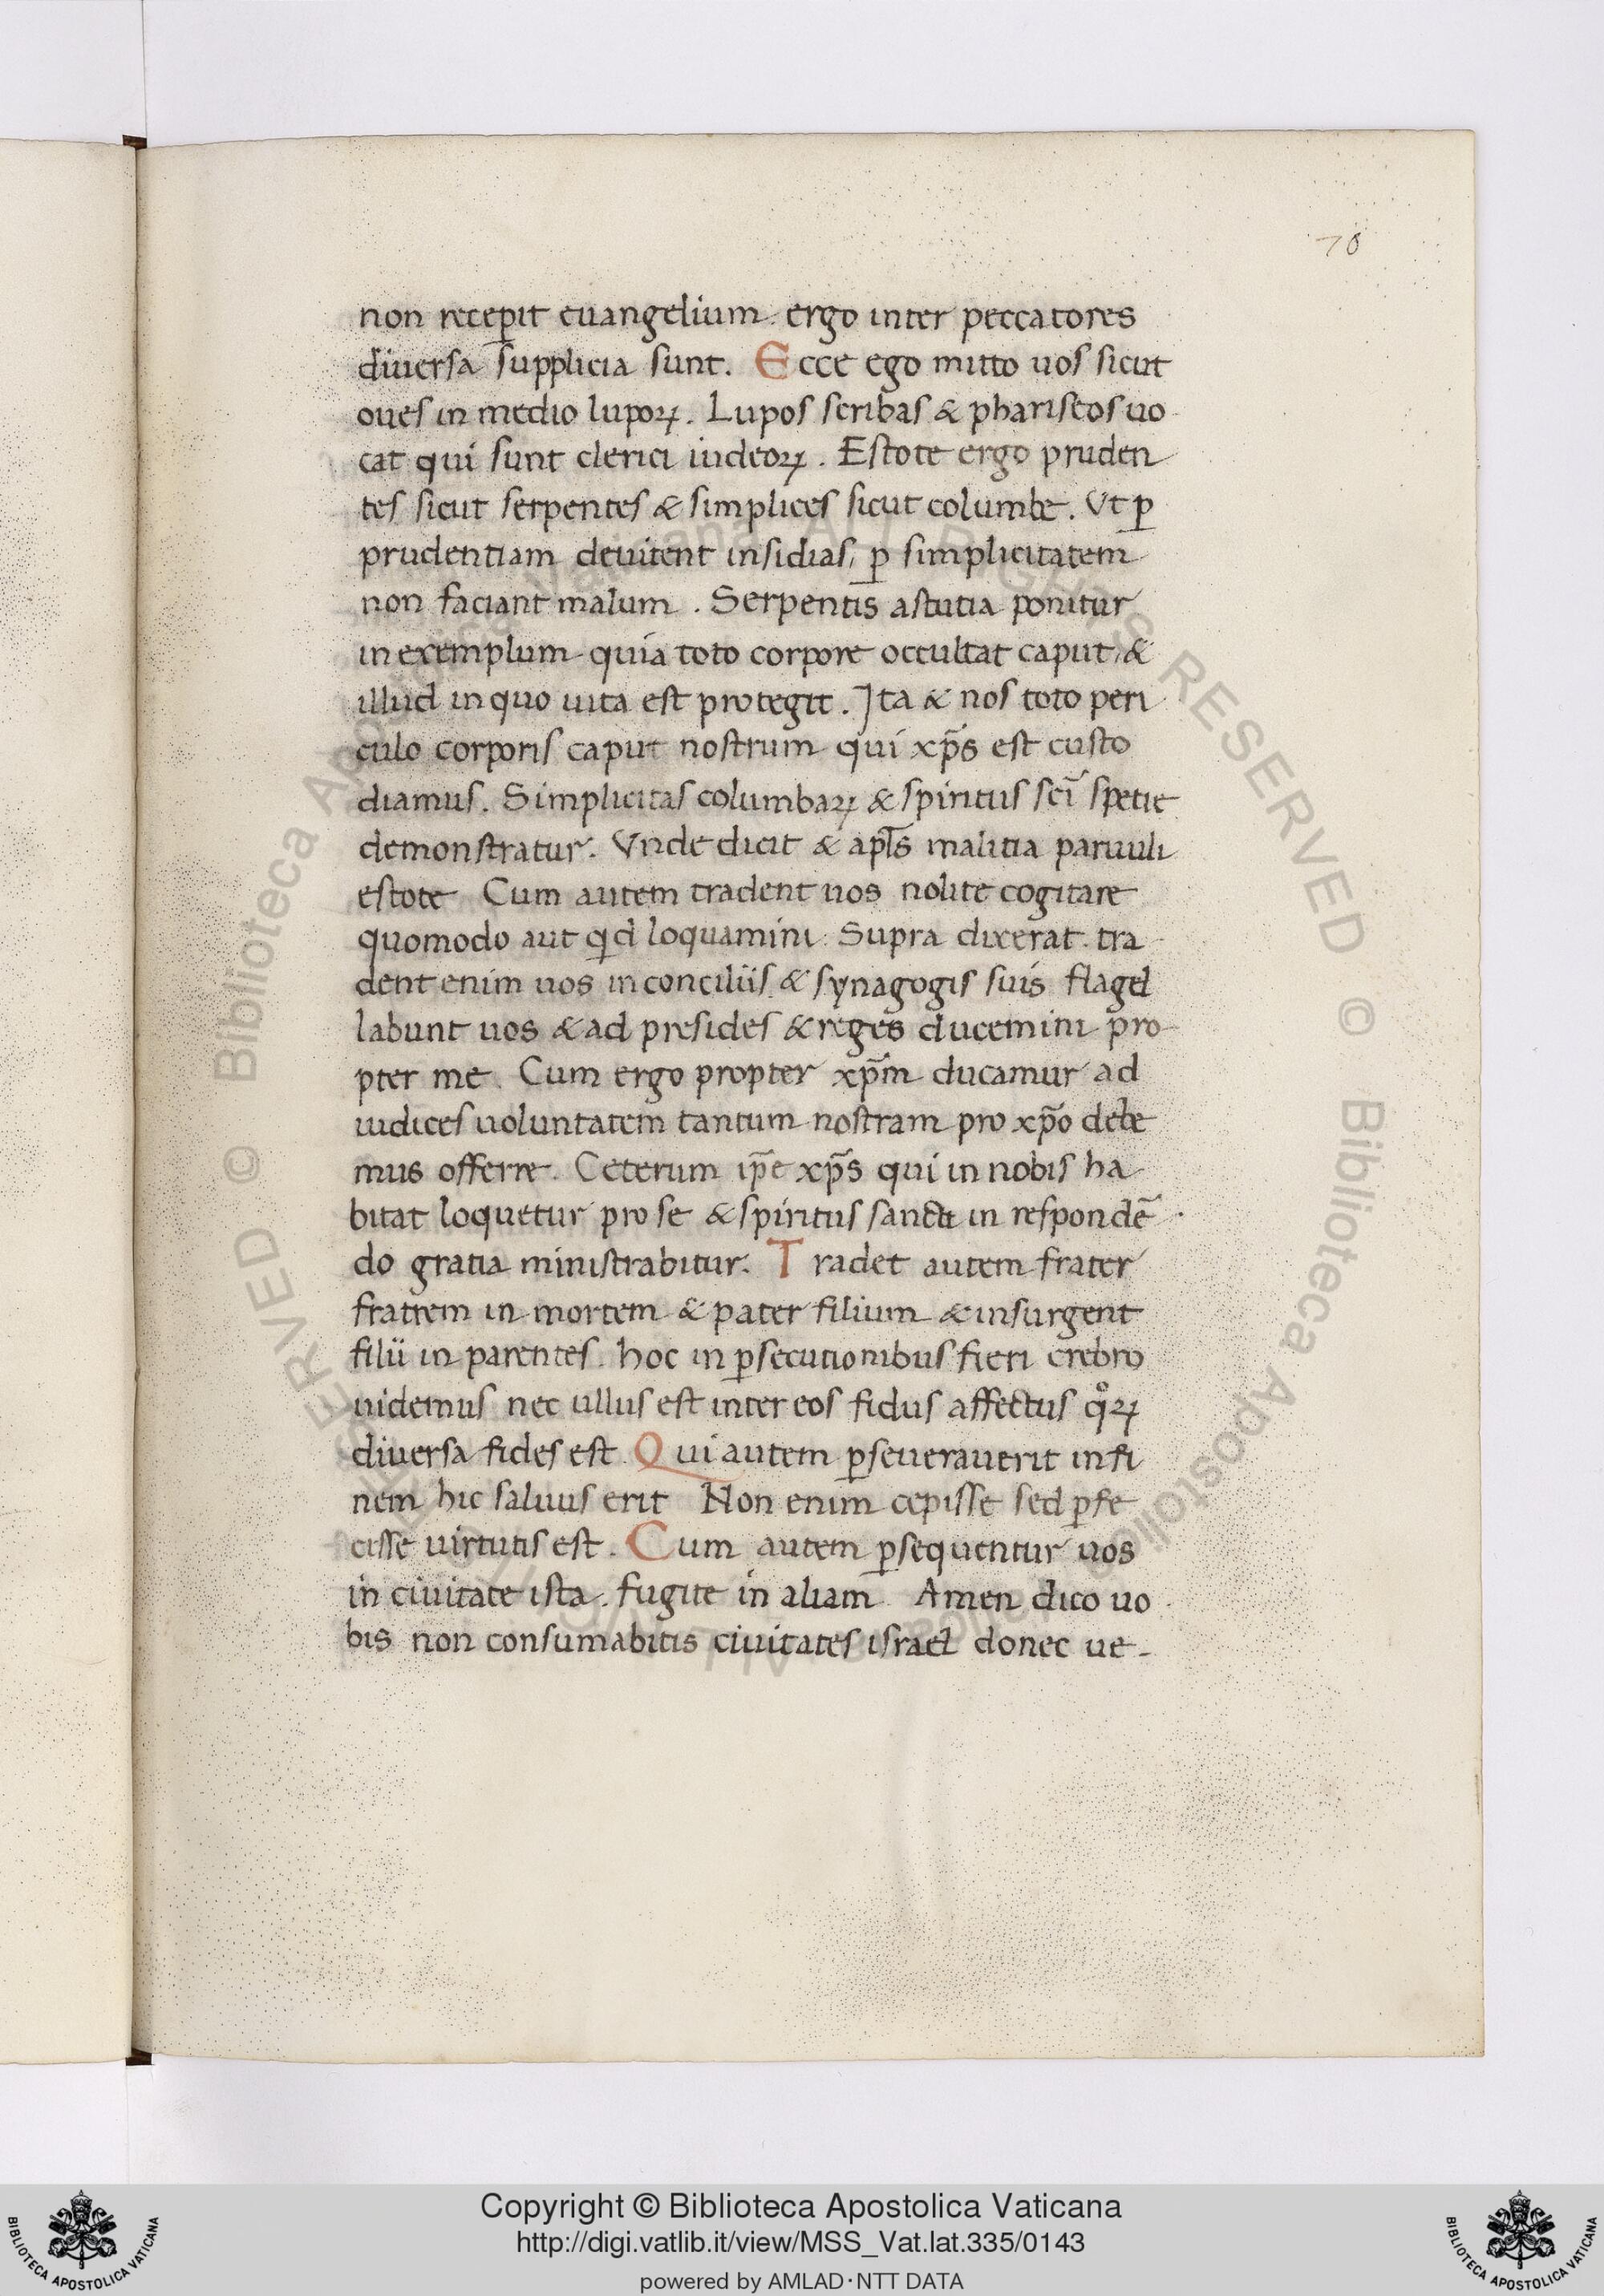 70
non recepit euangelium. ergo inter peccatores
diuersa supplicia sunt. Ecce ego mitto uos sicut
oues in medio lupoꝝ. Lupos scribas & phariseos uo
cat qui sunt clerici iudeoꝝ. Estote ergo pruden
tes sicut serpentes & simplices sicut columbe. Vt ꝑ
prudentiam deuitent insidias, ꝑ simplicitatem
non faciant malum. Serpentis astutia ponitur
in exemplum quia toto corpore occultat caput, &
illud in quo uita est protegit. Ita & nos toto peri
culo corporis caput nostrum qui xp̄s est custo
diamus. Simplicitas columbaꝝ & spiritus sc̄i spetie
demonstratur. Vnde dicit & apl̄s malitia paruuli
estote Cum autem tradent uos nolite cogitare
quomodo aut qͥd loquamini. Supra dixerat. tra
dent enim uos in conciliis & synagogis suis flagel
labunt uos & ad presides & reges ducemini pro
pter me. Cum ergo propter xp̄m ducamur ad
iudices uoluntatem tantum nostram pro xp̄o debe
mus offerre. Ceterum ip̄e xp̄s qui in nobis ha
bitat loquetur pro se & spiritus sancti in respondē
do gratia ministrabitur. Tradet autem frater
fratrem in mortem & pater filium & insurgent
filii in parentes. hoc in ꝑsecutionibus fieri crebro
uidemus nec ullus est inter eos fidus affectus qͦꝝ
diuersa fides est. Qui autem ꝑseuerauerit in fi
nem hic saluus erit Non enim cepisse sed ꝑfe
cisse uirtutis est. Cum autem ꝑsequentur uos
in ciuitate ista. fugite in aliam Amen dico uo
bis non consumabitis ciuitates israel donec ue-
Copyright © Biblioteca Apostolica Vaticana
http://digi.vatlib.it/view/MSS_Vat.lat.335/0143
powered by AMLAD·NTT DATA
BIBLIOTECA APOSTOLICA VATICANA
BIBLIOTECA APOSTOLICA VATICANA